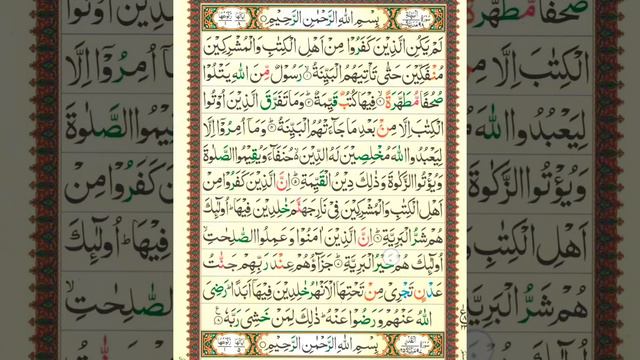 بِسْمِ اللهِ الرَّحْمٰنِ الرَّحِيْمِ
لَمْ يَكُنِ الَّذِيْنَ كَفَرُوْا مِنْ اَهْلِ الْكِتٰبِ وَالْمُشْرِكِيْنَ
مُنْفَكِّيْنَ حَتّٰى تَاْتِيَهُمُ الْبَيِّنَةُ ۙ رَسُوْلٌ مِّنَ اللهِ يَتْلُوْا
صُحُفًا مُّطَهَّرَةً ۙ فِيْهَا كُتُبٌ قَيِّمَةٌ ؕ وَمَا تَفَرَّقَ الَّذِيْنَ اُوْتُوا
الْكِتٰبَ اِلَّا مِنْۢ بَعْدِ مَا جَآءَتْهُمُ الْبَيِّنَةُ ؕ وَمَاۤ اُمِرُوْۤا اِلَّا
لِيَعْبُدُوا اللهَ مُخْلِصِيْنَ لَهُ الدِّيْنَ ۙ حُنَفَآءَ وَيُقِيْمُوا الصَّلٰوةَ
وَيُؤْتُوا الزَّكٰوةَ وَذٰلِكَ دِيْنُ الْقَيِّمَةِ ؕ اِنَّ الَّذِيْنَ كَفَرُوْا مِنْ
اَهْلِ الْكِتٰبِ وَالْمُشْرِكِيْنَ فِيْ نَارِ جَهَنَّمَ خٰلِدِيْنَ فِيْهَا ؕ اُولٰٓئِكَ
هُمْ شَرُّ الْبَرِيَّةِ ؕ اِنَّ الَّذِيْنَ اٰمَنُوْا وَعَمِلُوا الصّٰلِحٰتِ ۙ
اُولٰٓئِكَ هُمْ خَيْرُ الْبَرِيَّةِ ؕ جَزَآؤُهُمْ عِنْدَ رَبِّهِمْ جَنّٰتُ
عَدْنٍ تَجْرِيْ مِنْ تَحْتِهَا الْاَنْهٰرُ خٰلِدِيْنَ فِيْهَاۤ اَبَدًا ؕ رَضِيَ
اللهُ عَنْهُمْ وَرَضُوْا عَنْهُ ؕ ذٰلِكَ لِمَنْ خَشِيَ رَبَّهٗ
بِسْمِ اللهِ الرَّحْمٰنِ الرَّحِيْمِ